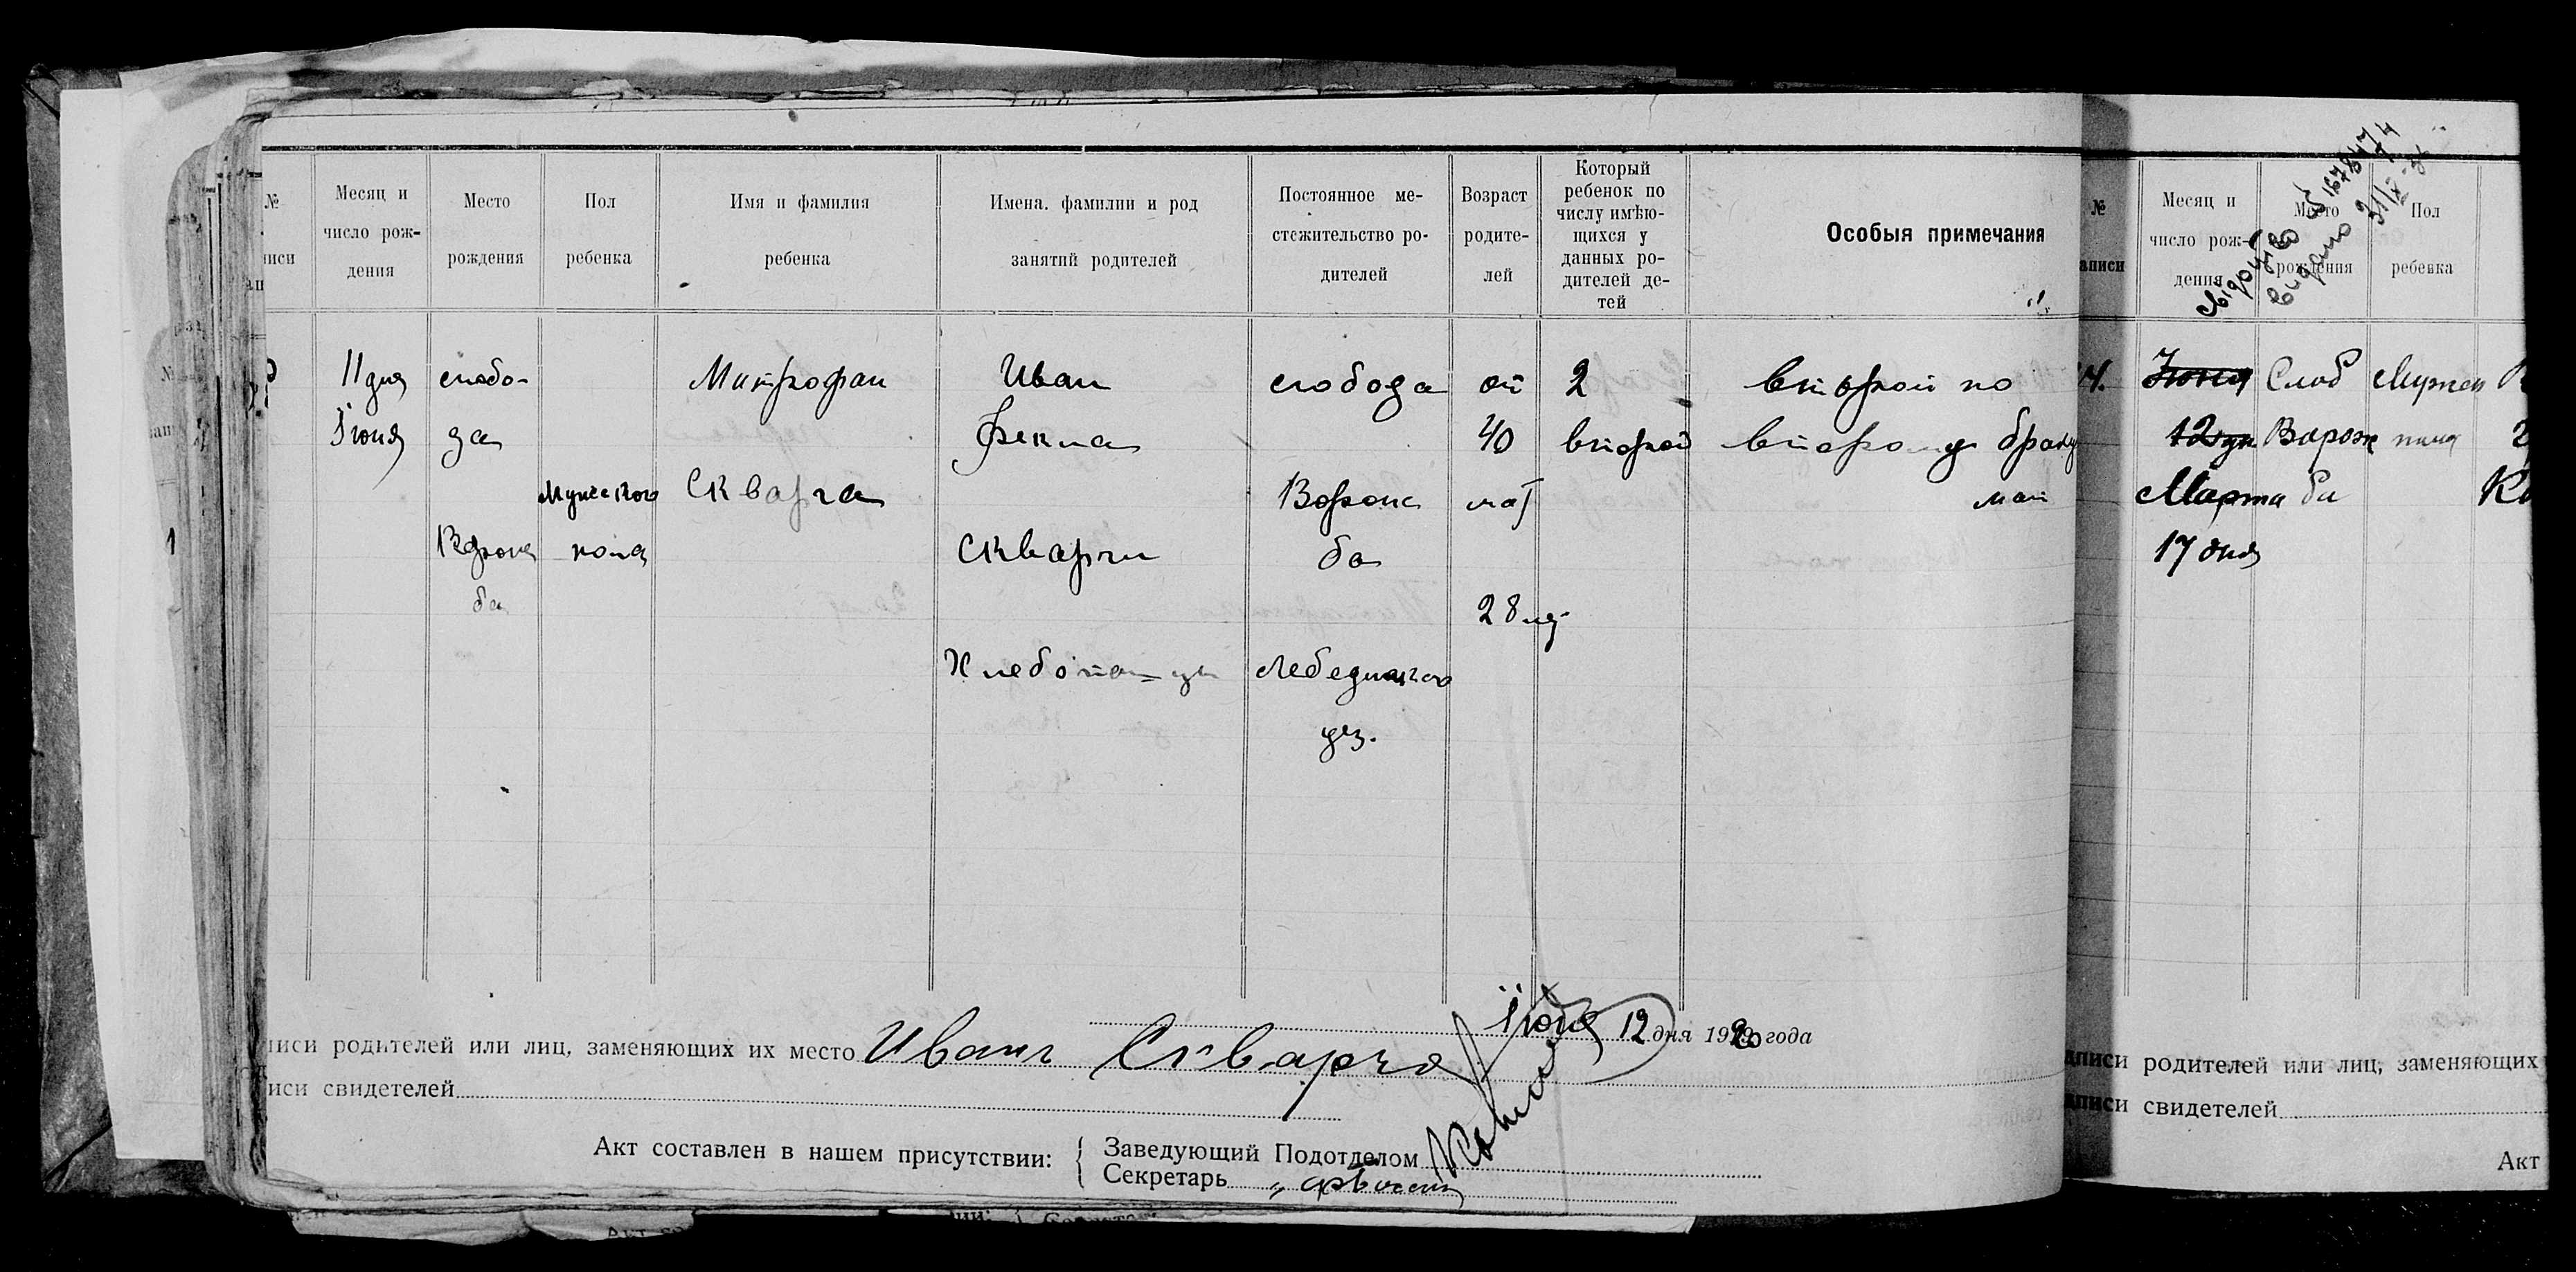 №
иси
Месяц и
число рож-
дения
Место
рождения
Пол
ребенка
Имя и фамилия
ребенка
Имена. фамилии и род
занятий родителей
Постоянное ме-
стожительство ро-
дителей
Возраст
родите-
лей
Который
ребенок по
числу имѣю-
щихся у
данных ро-
дителей де-
тей
Особыя примечания
11 дня
Їюня
слобо-
да
Ворож
ба
Мужеского
пола
Митрофан
Скварча
Иван
Фекла
Скварчи
Хлебопашцы
слобода
Ворож
ба
Лебединского
уез.
от
40
мат
28 лет
2
второй
второй по
второму браку
мат
Їюня 12 дня 1920 года
иси родителей или лиц, заменяющих их место Иван Скварча
иси свидетелей
Акт составлен в нашем присутствии:
Заведующий Подотделом
Секретарь
№
аписи
Месяц и
число рож-
дения
Место
рождения
Пол
ребенка
Свідоцтво
видано
4.
Їюня
12 дн
Марта
17 дня
Слоб
Ворож
ба
Мужск
пола
дписи родителей или лиц, заменяющих
дписи свидетелей
Акт